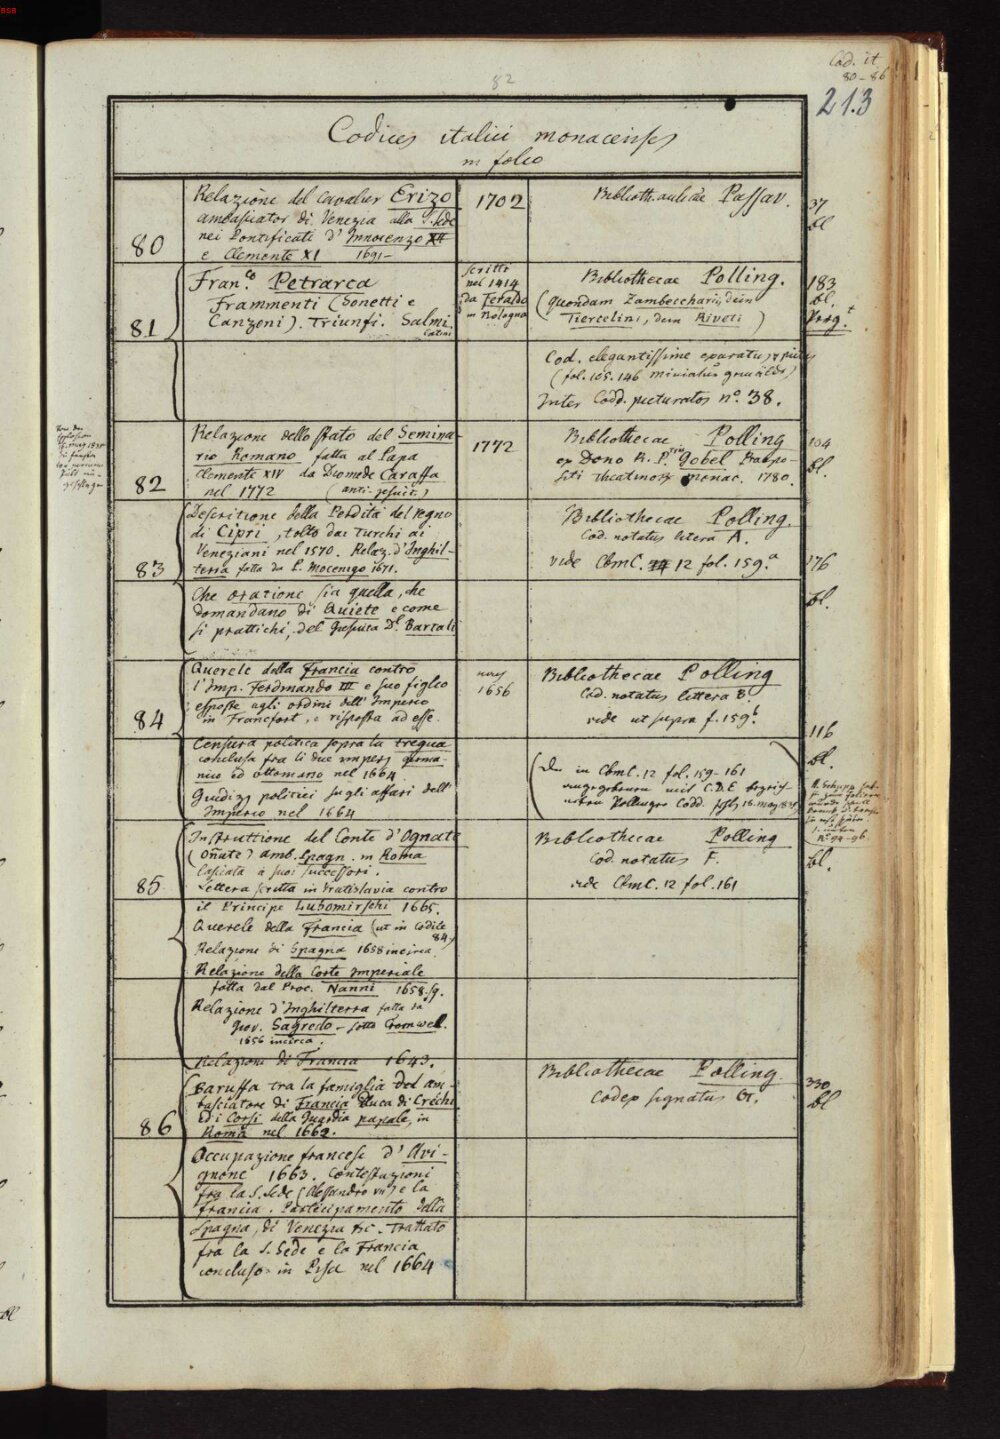 82
Cod. it.
80-86
213
Codices italici monacenses
in folio
80
Relazione del Cavalier Erizo
ambasciator di Venezia alla S. Sede
nei Pontificati d'Innocenzo XII
e Clemente XI 1691-
1702
Biblioth. aulicae Passav.
37
bl
81
Fran.co Petrarca
Frammenti (Sonetti e
Canzoni). Triunfi. Salmi
latini
scritto
nel 1414
da Feraldo
in Bologna
Bibliothecae Polling.
(quondam Zambeccharii, dein
Tiercelini, dein Rivoli)
183
bl.
Cod. elegantissime
(fol. 105. 146
Inter Codd. picturatos no. 38.
82
Relazione dello stato del Semina-
rio Romano fatta al Papa
Clemente XIV da Diomede Caraffa
nel 1772 (anti-jesuit.)
1772
Bibliothecae Polling
ex Dono R. P. Gobel Praepo-
siti Theatinor. Monac. 1780.
104
bl.
83
Descritione della Perdita del regno
di Cipri, tolto dai Turchi ai
Veneziani nel 1570. Relaz. d'Inghil-
terra fatta da P. Mocenigo 1671.
Bibliothecae Polling.
Cod. notatus litera A.
vide CbmC. 12 fol. 159.a
176
bl.
Che oratione sia quella, che
domandano di Quiete e come
si prattichi, del Gesuita Dl. Bartoli
84
Querele della Francia contro
l'Imp. Ferdinando III e suo figlio
esposte agli ordini dell'Imperio
in Francfort, e risposta ad esse.
1656
Bibliothecae Polling
Cod. notatus littera B.
vide ut supra f. 159b.
116
bl.
Censura politica sopra la tregua
conclusa fra li due imperj germa-
nico ed ottomano nel 1664
Giudizj politici sugli affari dell'
Imperio nel 1664
(Die in CbmC. 12 fol. 159-161
85
Instruttione del Conte d'Ognate
(Oñate) amb. Spagn. in Roma
lasciata a suoi successori.
Lettera scritta in Vratislavia contro
il Principe Lubomirschi 1665.
Querele della Francia (ut in Codice
84)
Relazione di Spagna 1658 incirca
Relazione della Corte Imperiale
fatta dal Proc. Nanni 1658.
Relazione d'Inghilterra fatta da
Giov. Sagredo - sotto Cromwel.
1656 incirca.
Relazione di Francia 1643.
Bibliothecae Polling
Cod. notatus F.
vide CbmC. 12 fol. 161
bl.
86
Baruffa tra la famiglia del am-
basciatore di Francia Duca di Crechi
ed i Corsi della Guardia papale, in
Roma nel 1662.
Bibliothecae Polling
Codex signatus G.
330
bl
Occupazione francese d'Avi-
gnone 1663. Contestazioni
fra la S. Sede (Alessandro VII) e la
Francia. Participamento dalla
Spagna, di Venezia &c. Trattato
fra la S. Sede e la Francia
concluso in Pisa nel 1664